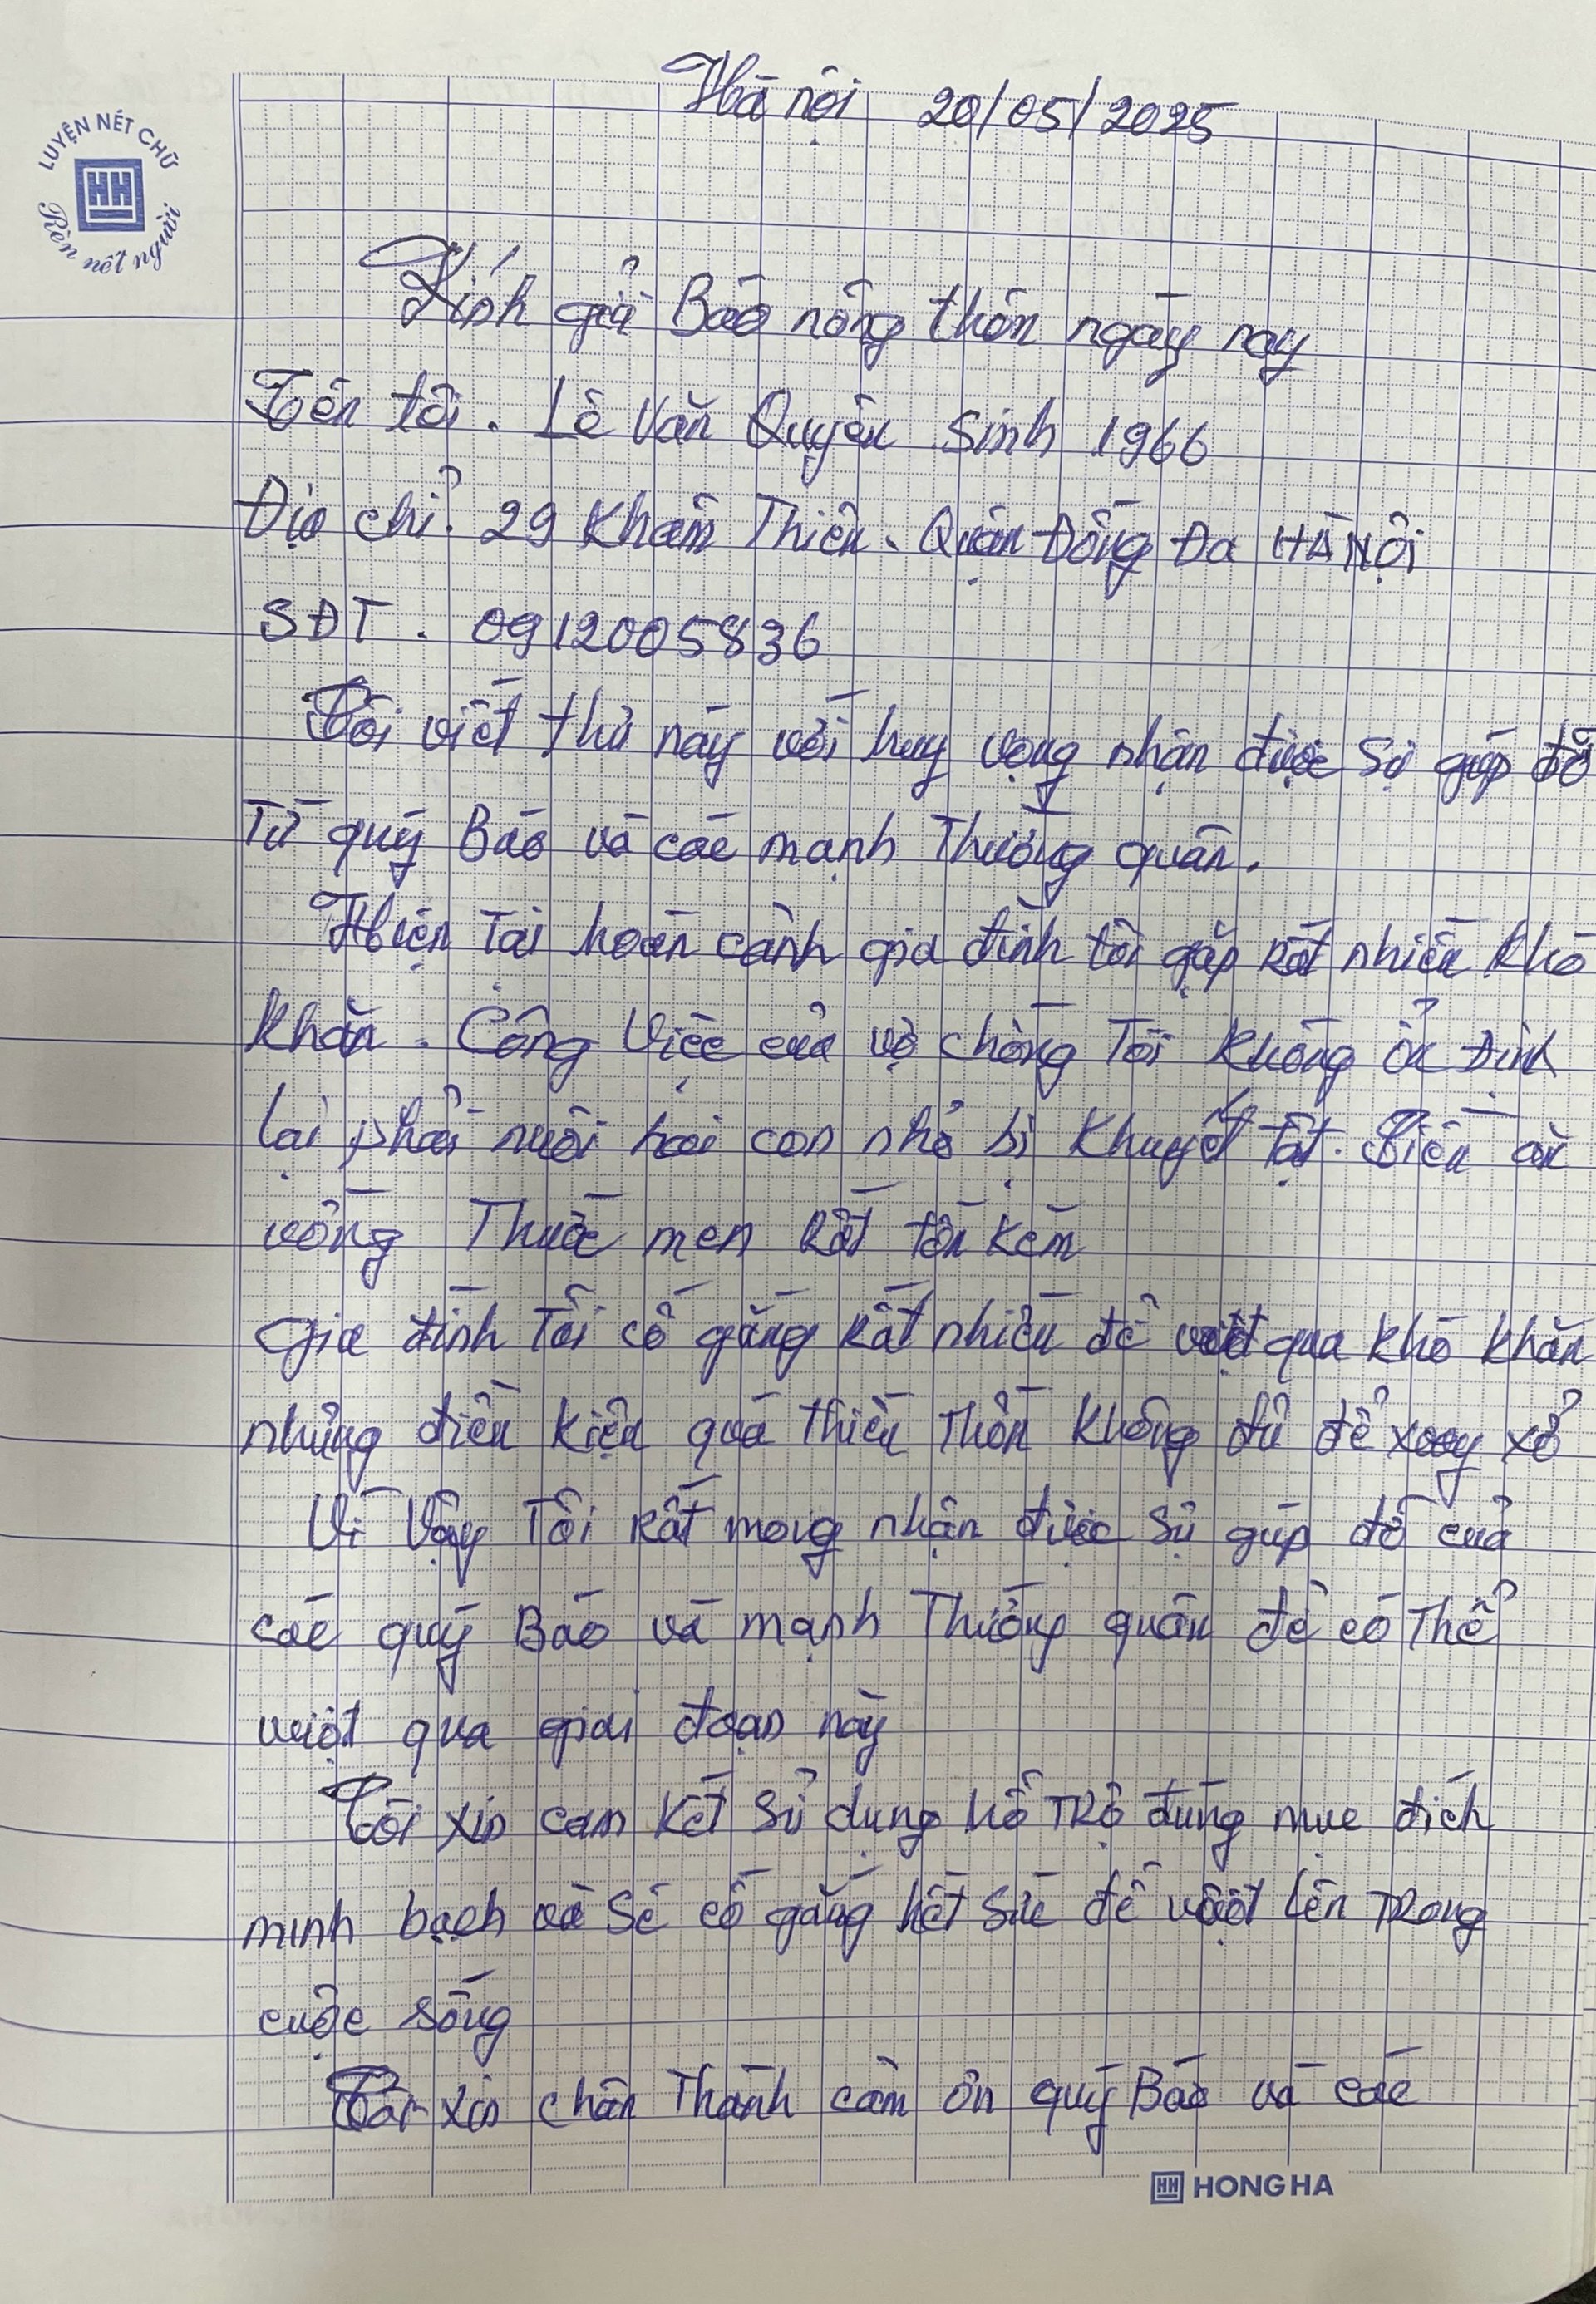 LUYỆN NÉT CHỮ
Rèn nết người
Hà nội 20/05/2025
Kính gửi Báo nông thôn ngày nay
Tên tôi. Lê Văn Quyên Sinh 1966
Địa chỉ. 29 Khâm Thiên. Quận Đống Đa HÀ NỘI
SĐT. 0912005836
Tôi viết thư này với huy vọng nhận được sự giúp đỡ
Từ quý Báo và các mạnh Thường quân.
Hiện Tại hoàn cảnh gia đình tôi gặp rất nhiều khó
khăn. Công Việc của vợ chồng Tôi không ổn định
lại phải nuôi hai con nhỏ bị khuyết tật. Tiền ăn
uống Thuốc men Rất tốn kém
Gia đình Tôi cố gắng Rất nhiều để vượt qua khó khăn
nhưng điều kiện quá thiếu Thốn không đủ để xoay xở
Vì Vậy Tôi Rất mong nhận được sự giúp đỡ của
các quý Báo và mạnh Thường quân để có Thể
vượt qua giai đoạn này
Tôi xin cam kết sử dụng hỗ TRợ đúng mục đích
minh bạch và sẽ cố gắng hết sức để vượt lên TRong
cuộc sống
Tôi xin chân Thành cảm ơn quý Báo và các
HH HONG HA